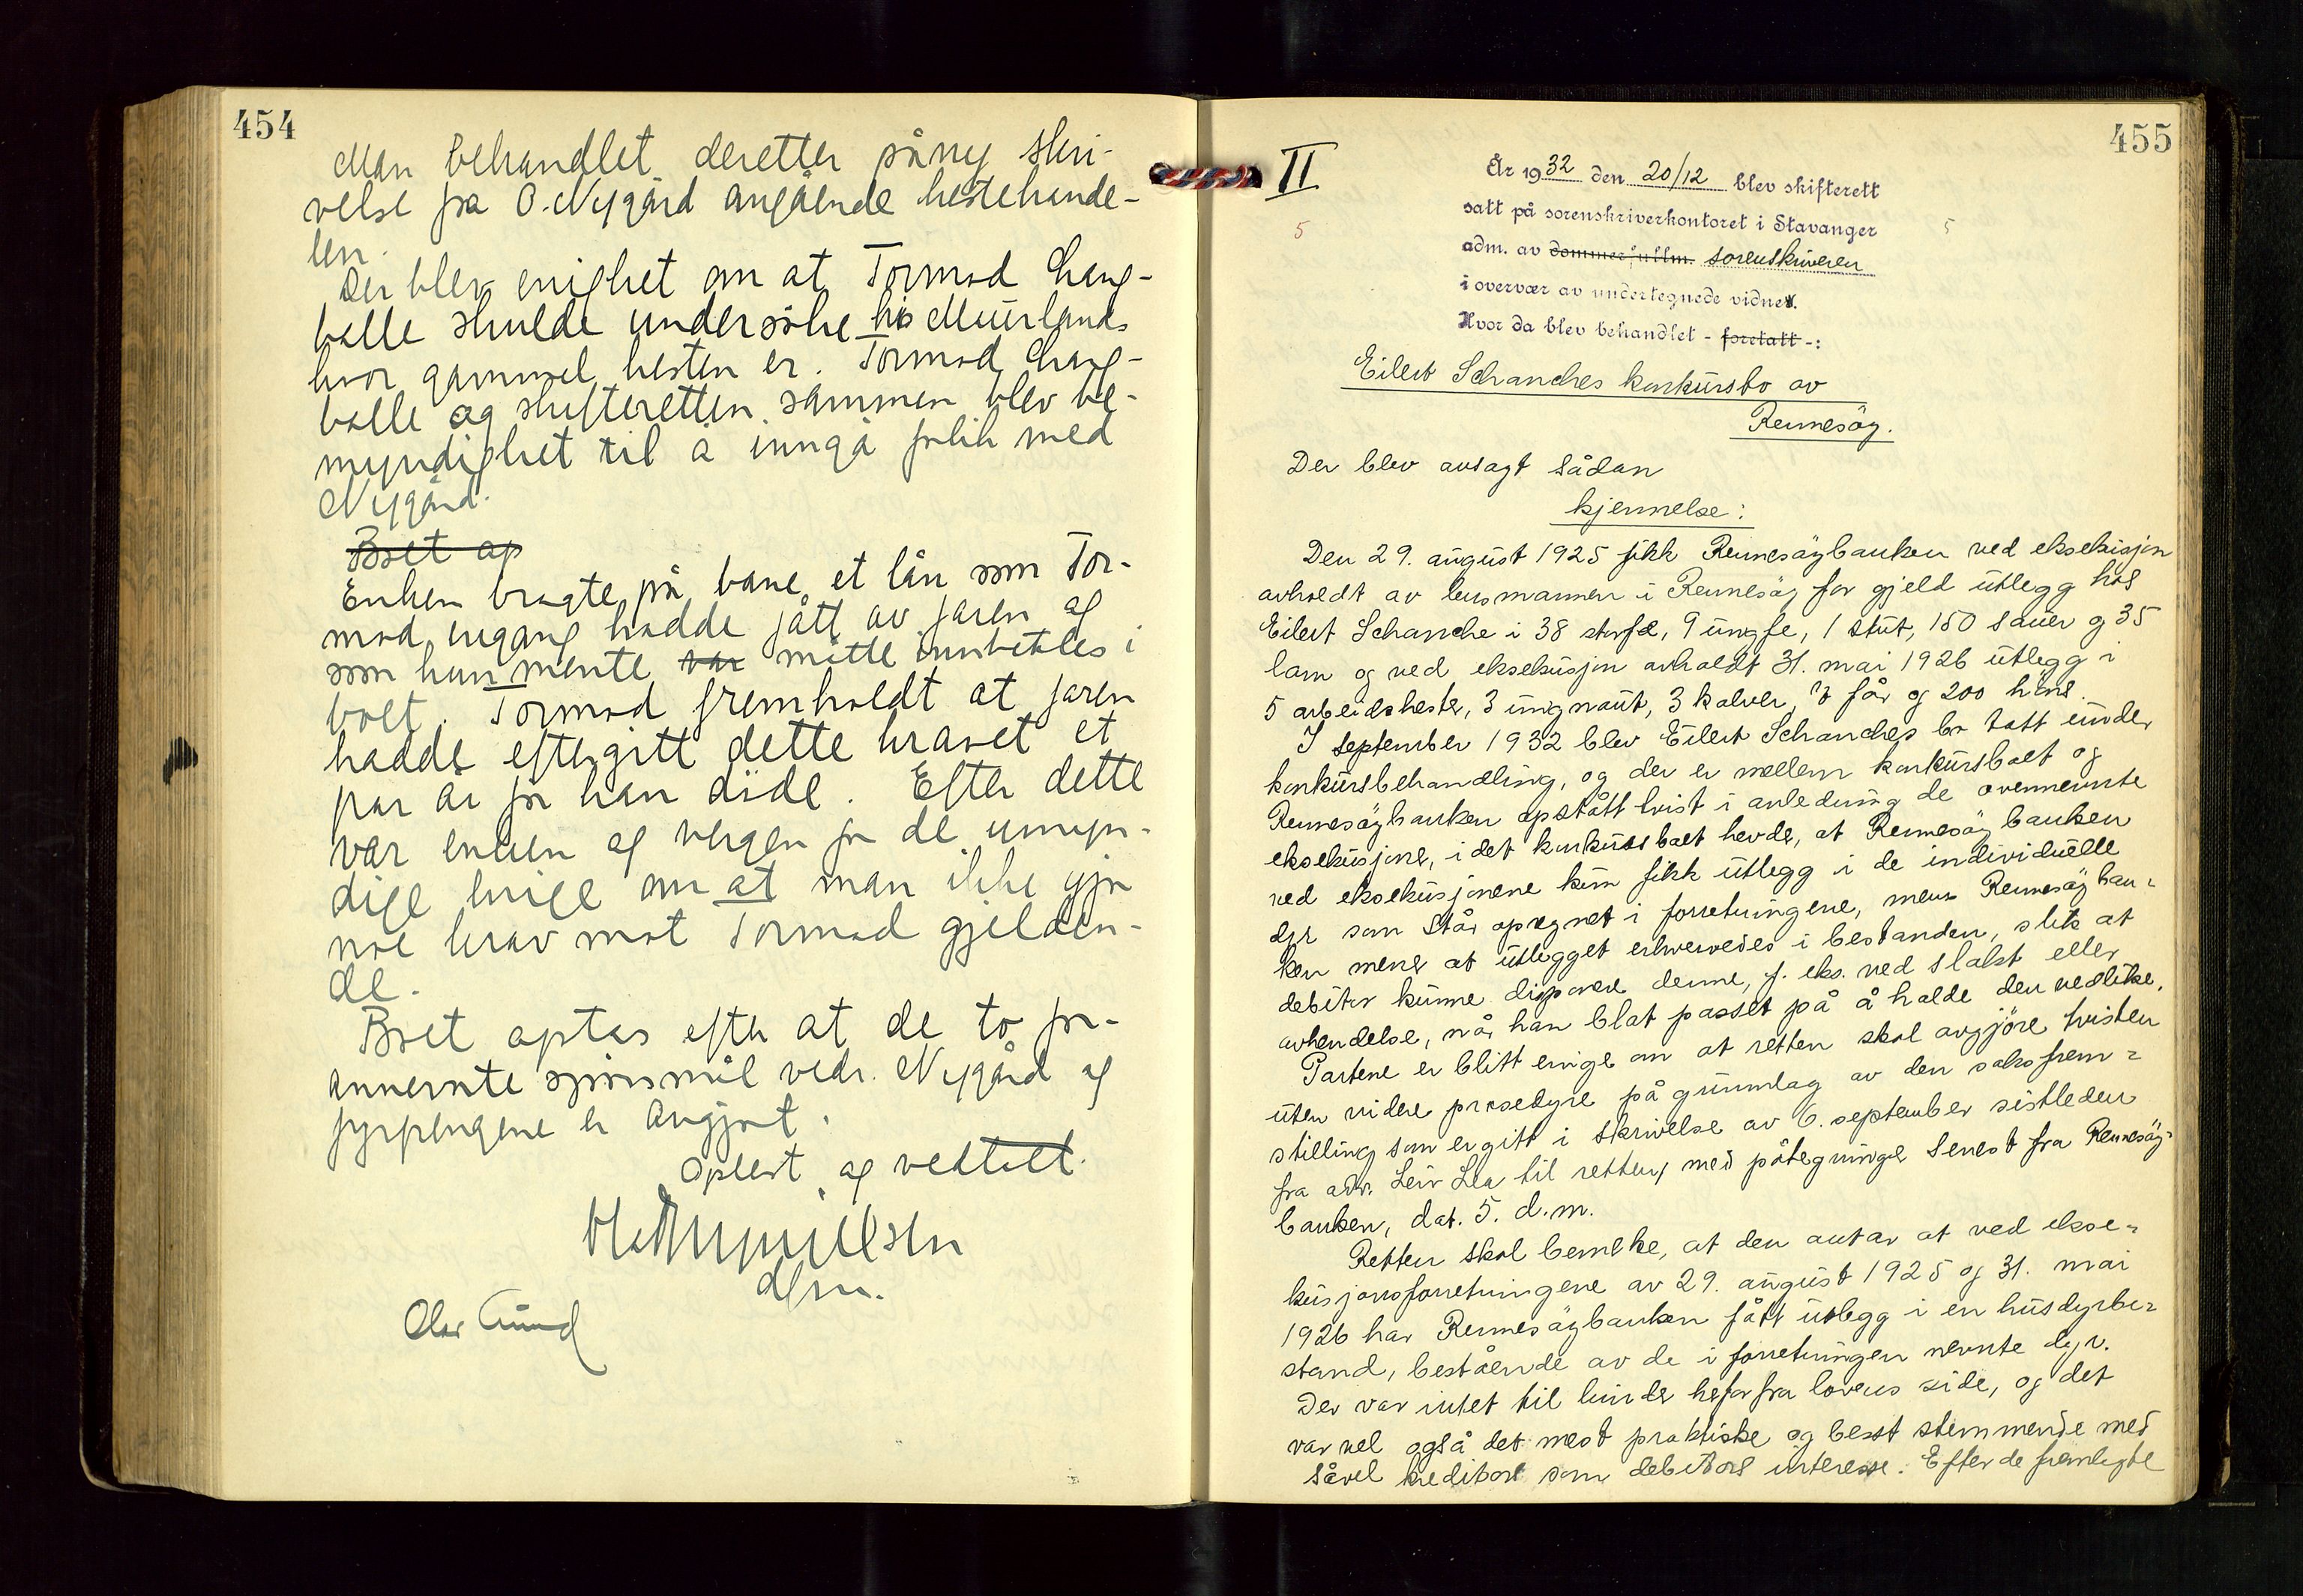 454
Man behandlet deretter påny skri-
velse fra O. Nygård angående hestehande-
len.
Der blev enighet om at Tormod Haug-
valle skulde undersöke hos Muurlands
hvor gammel hesten er. Tormod Haug-
valle og skifteretten sammen blev be-
myndighet til å inngå forlik med
Nygård.
Boet op
Enken bragte på bane et lån som Tor-
mod engang hadde fått av faren og
som hun mente var måtte innbetales i
boet. Tormod fremholdt at faren
hadde eftergitt dette kravet et
par år för han döde. Efter dette
var enken og vergen for de umyn-
dige enige om at man ikke gjör
noe krav mot Tormod gjelden-
de.
Boet optas efter at de to for-
annevnte spörsmål vedr. Nygård og
fyrpengene er avgjort.
Oplest og vedtatt.
dfm.
Olav
455
II
5
5
År 1932 den 20/12 blev skifterett
satt på sorenskriverkontoret i Stavanger
adm. av dommerfullm. sorenskriveren
i overvær av undertegnede vidner.
Hvor da blev behandlet - foretatt -:
Eilert Schanches konkursbo av
Rennesöy.
Der blev avsagt sådan
kjennelse:
Den 29. august 1925 fikk Rennesöybanken ved eksekusjon
avholdt av lensmannen i Rennesöy for gjeld utlegg hos
Eilert Schanche i 38 storfe, 9 ungfe, 1 stut, 150 sauer og 35
lam og ved eksekusjon avholdt 31. mai 1926 utlegg i
5 arbeidshester, 3 ungnaut, 3 kalver, får og 200 höns.
I september 1932 blev Eilert Schanches bo tatt under
konkursbehandling, og der er mellem konkursboet og
Rennesöybanken opstått tvist i anledning de ovennevnte
eksekusjoner, idet konkursboet hevder, at Rennesöybanken
ved eksekusjonene kun fikk utlegg i de individuelle
dyr som står opregnet i forretningene, mens Rennesöyban-
ken mener at utlegget erhvervedes i bestanden, slik at
debitor kunne disponere denne, f. eks. ved slakt eller
avhendelse, når han blot passet på å holde den vedlike.
Partene er blitt enige om at retten skal avgjöre tvisten
uten videre prosedyre på grunnlag av den saksfrem-
stilling som er gitt i skrivelse av 6. september sistleden
fra adv. Leiv Lea til retten, med påtegninger senest fra Rennesöy-
banken, dat. 5. d.m.
Retten skal bemerke, at den antar at ved ekse-
kusjonsforretningene av 29. august 1925 og 31. mai
1926 har Rennesöybanken fått utlegg i en husdyrbe-
stand, bestående av de i forretningen nevnte dyr.
Der var intet til hinder herfor fra lovens side, og det
var vel også det mest praktiske og best stemmende med
såvel kreditors som debitors interesse. Efter de fremlagte